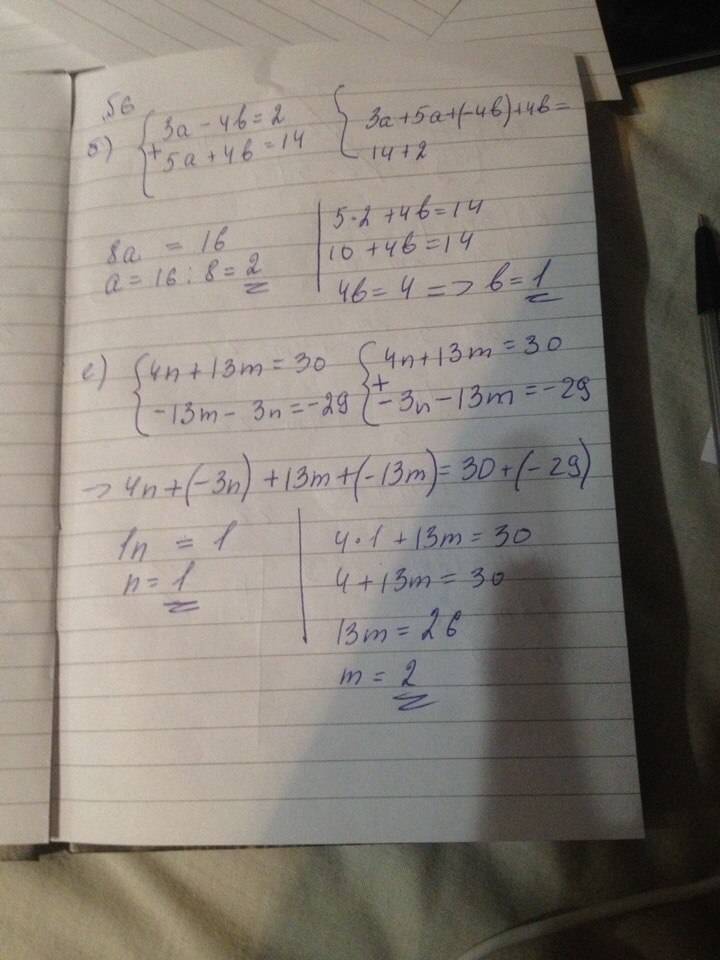 56
б) { 3a - 4b = 2
+ 5a + 4b = 14
{ 3a + 5a + (-4b) + 4b =
14 + 2
8a = 16
a = 16 : 8 = 2
5 · 2 + 4b = 14
10 + 4b = 14
4b = 4 => b = 1
e) { 4n + 13m = 30
-13m - 3n = -29
{ 4n + 13m = 30
+ -3n - 13m = -29
-> 4n + (-3n) + 13m + (-13m) = 30 + (-29)
1n = 1
n = 1
4 · 1 + 13m = 30
4 + 13m = 30
13m = 26
m = 2